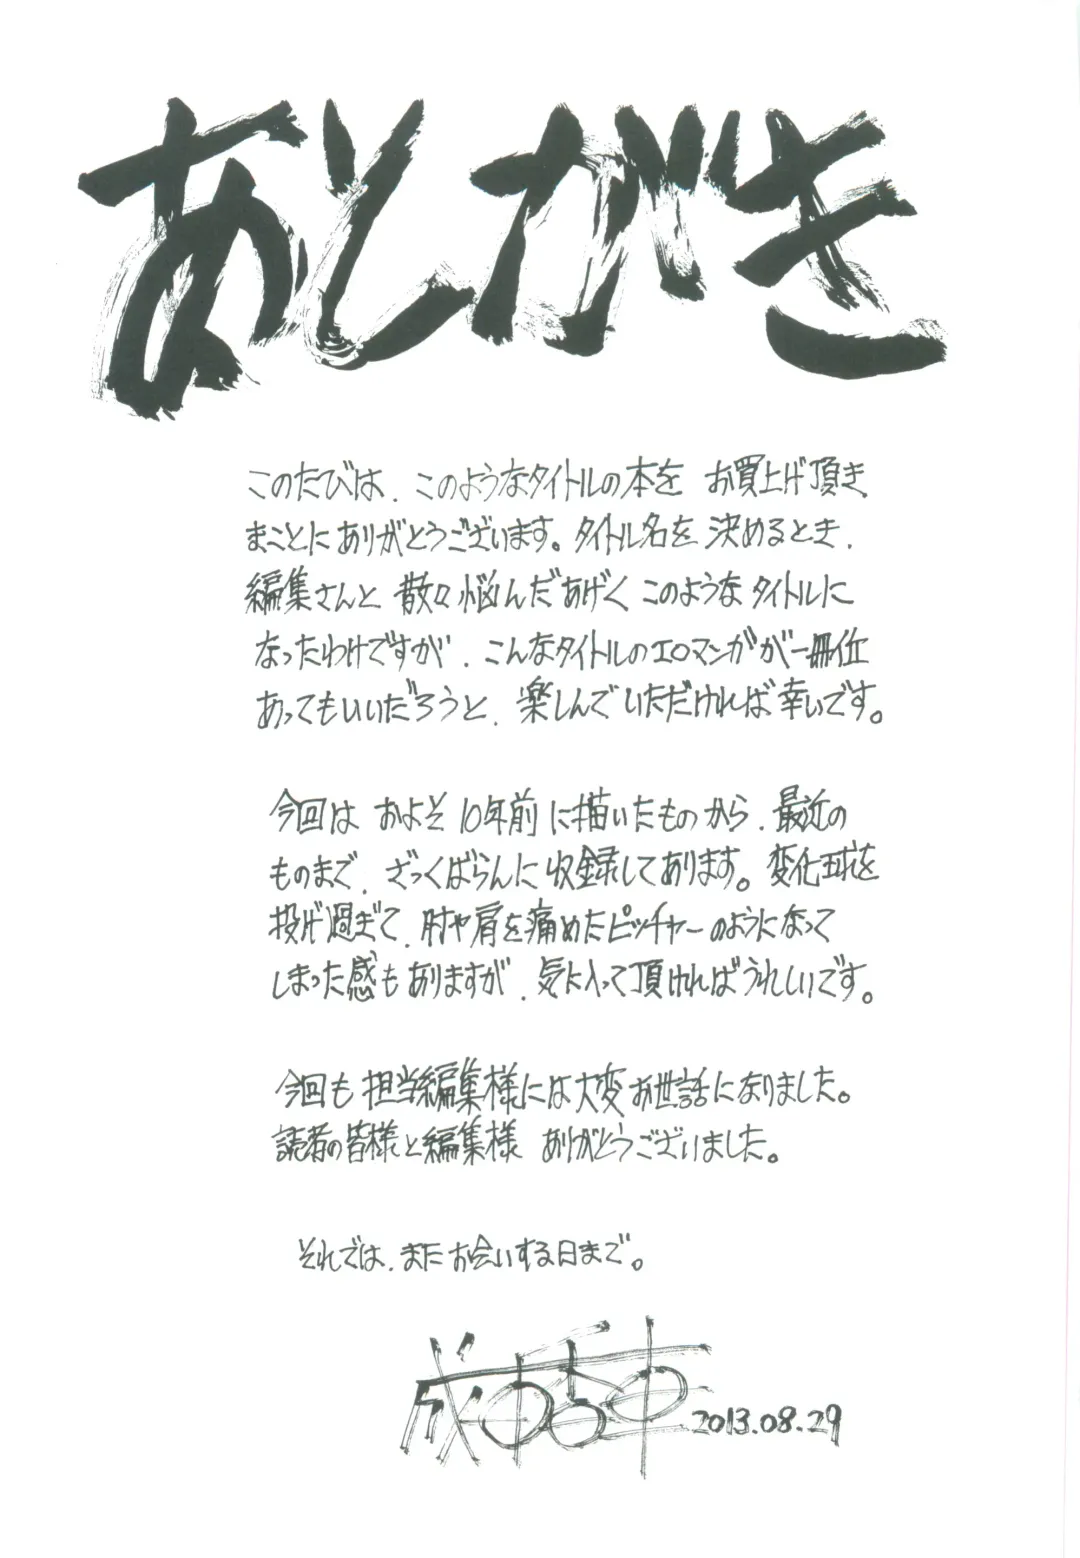 あとがき
このたびは、このようなタイトルの本を お買上げ頂き、
まことにありがとうございます。タイトル名を 決めるとき、
編集さんと 散々悩んだあげく このような タイトルに
なったわけですが、こんなタイトルのエロマンガが一冊位
あってもいいだろうと、楽しんでいただければ幸いです。
今回は およそ 10年前に描いたものから、最近の
ものまで、ざっくばらんに 収録してあります。変化球を
投げ過ぎて、肘や肩を痛めたピッチャーのようになって
しまった感もありますが、気に入って頂ければうれしいです。
今回も 担当編集様には大変お世話になりました。
読者の皆様と編集様 ありがとうございました。
それでは、またお会いする日まで。
2013.08.29